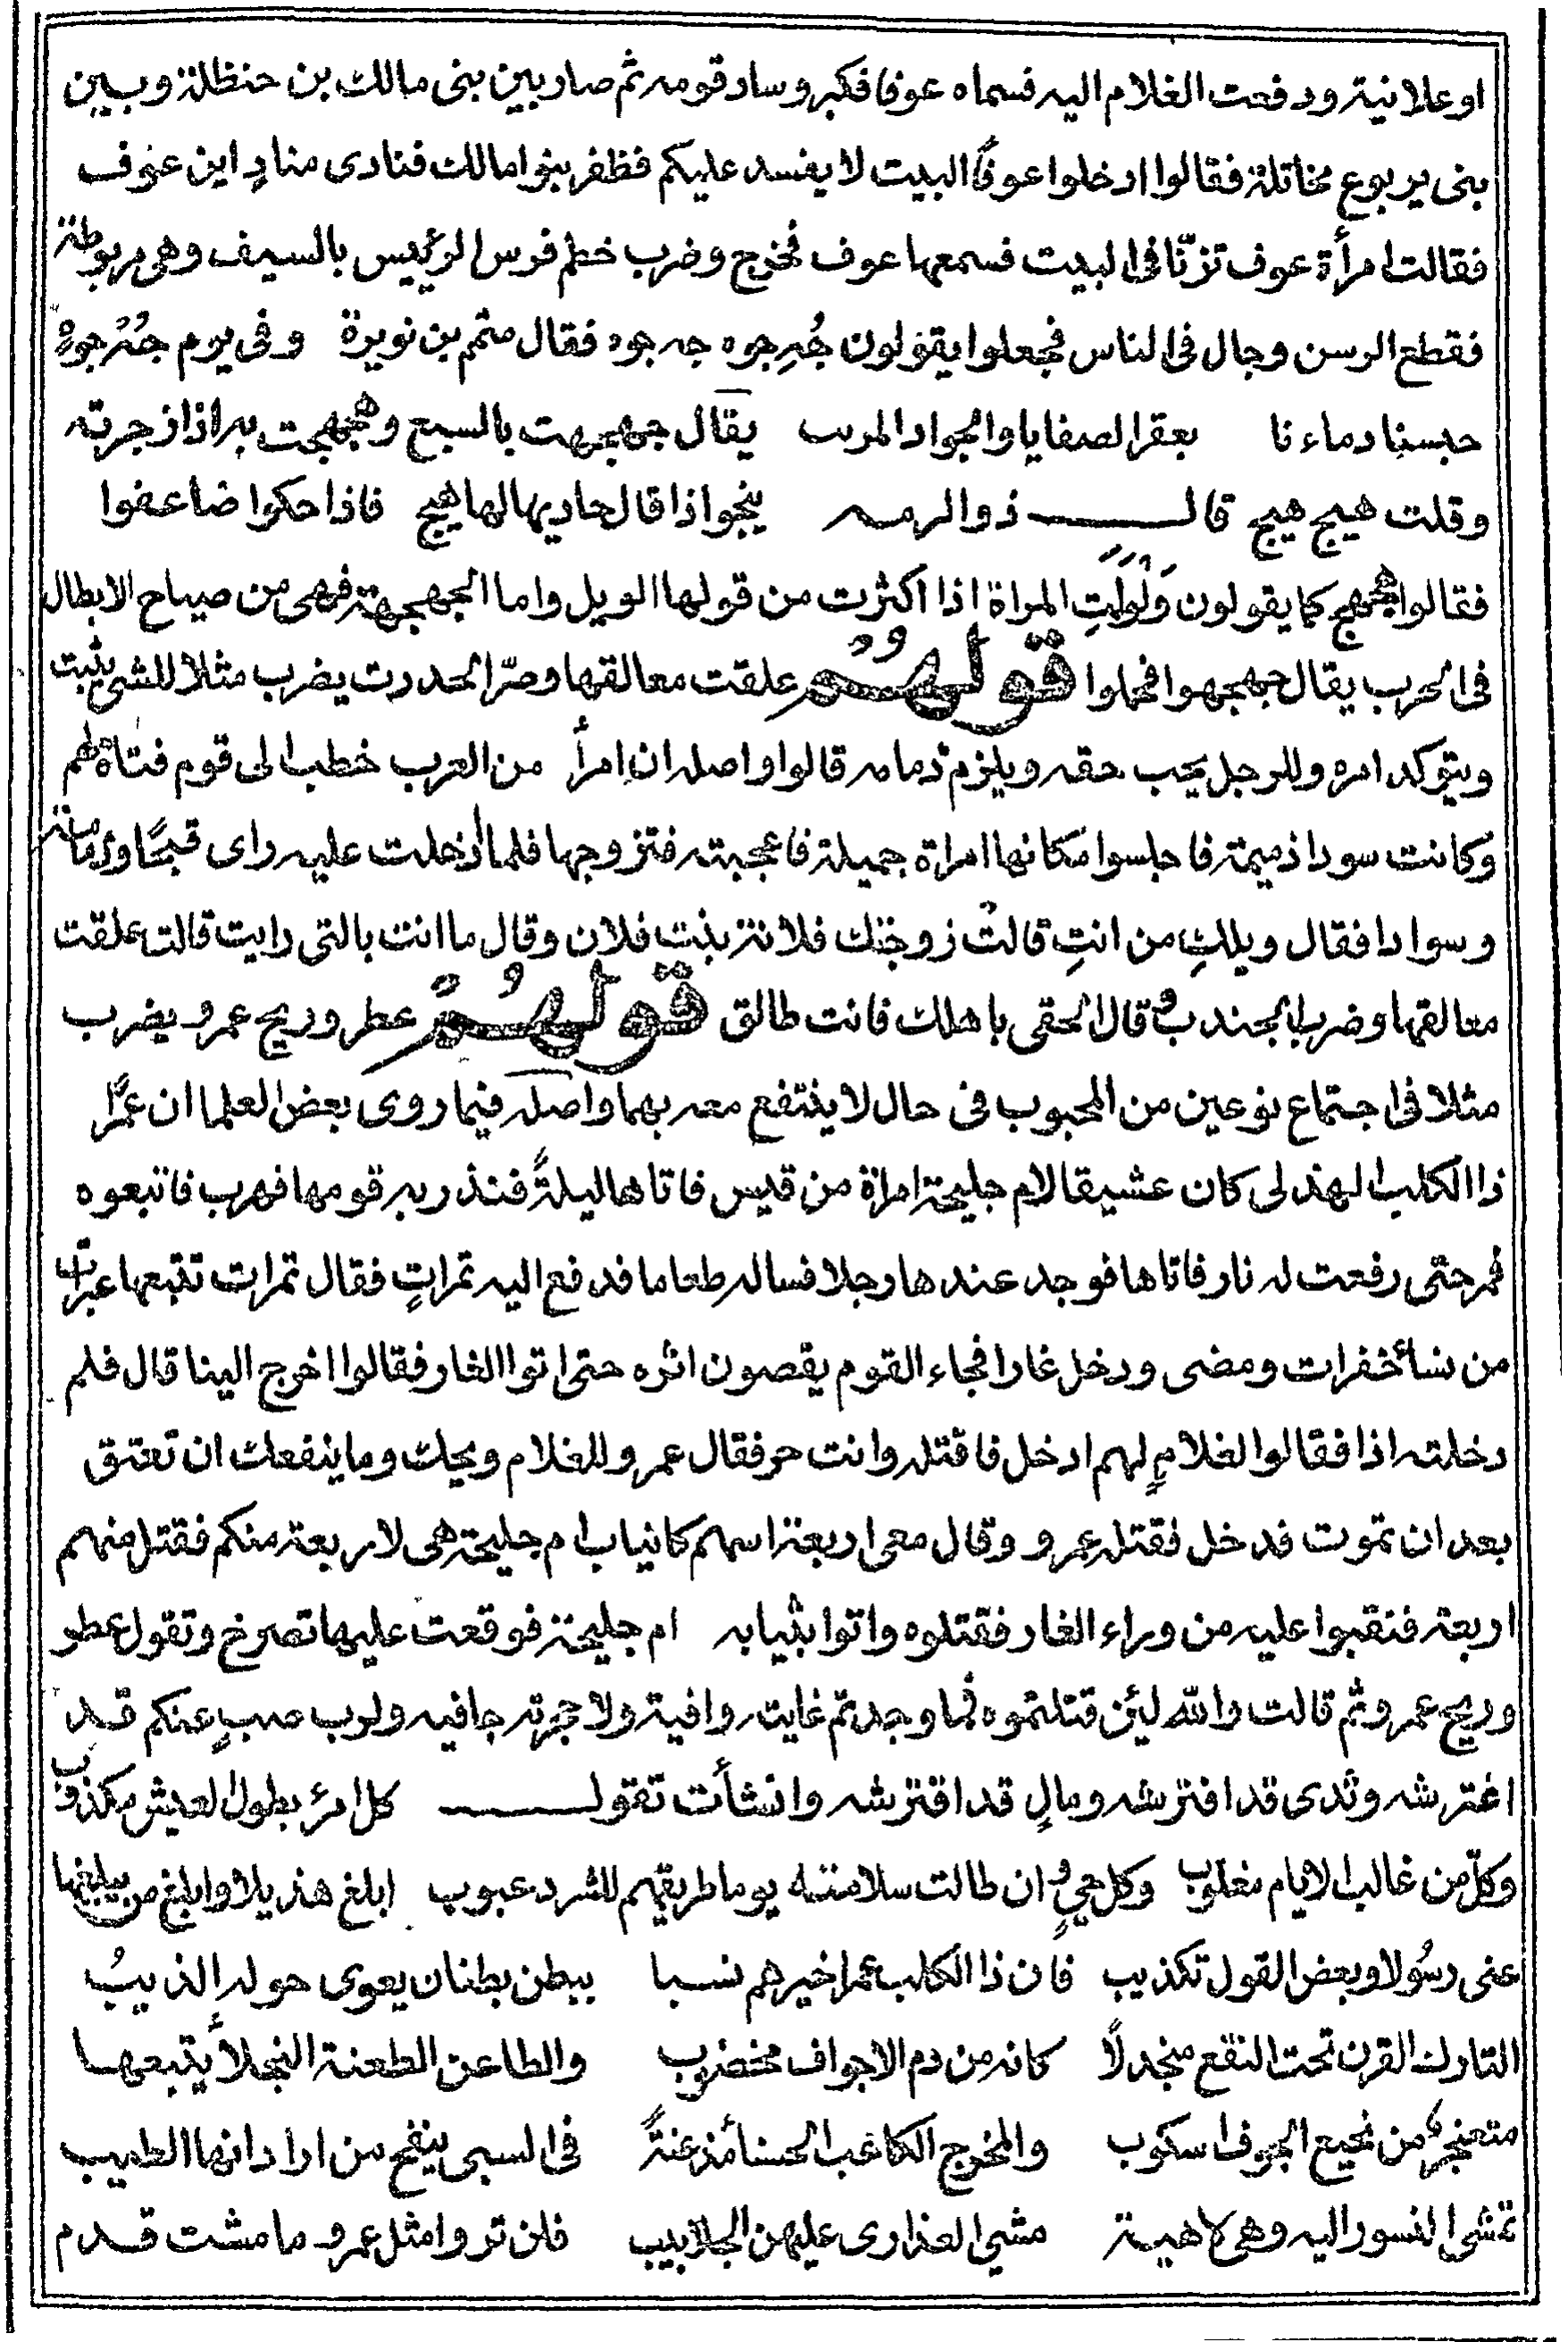 او علانية ودفعت الغلام اليه فسماه عوفا فكبر وساد قومه ثم صار بين بنى مالك بن حنظلة وبين
بنى يربوع مخاتلة فقالوا ادخلوا عوفًا البيت لا يفسد عليكم فظفر بنوا مالك فنادى منادٍ اين عوف
فقالت امرأة عوف تزنّا فى البيت فسمعها عوف فخرج وضرب خطم فرس الرئيس بالسيف وهى مربوطة
فقطع الرسن وجال فى الناس فجعلوا يقولون جُهِ جوه جه جوه فقال متمم بن نويرة وفى يوم جُهْ جوهٍ
حبسنا دماءنا بعقر الصفايا والجواد المربب يقال جهجهت بالسبع وهجهجت به اذا زجرته
وقلت هيج هيج قال ذو الرمه ينجو اذا قال حاديها لها هيج فاذا حكوا ضاعفوا
فقالوا هجهج كما يقولون وَلْوَلَتِ المراة اذا اكثرت من قولها الويل واما الجهجهة فهى من صياح الابطال
فى الحرب يقال جهجهوا فحملوا قولهُمُ علقت معالقها وصرّ الجندب يضرب مثلا للشئ يثبت
ويتوكد امره وللرجل يجب حقه ويلزم ذمامه قالوا واصله ان امرأ من العرب خطب الى قوم فتاة لهم
وكانت سودا ذميمة فاجلسوا مكانها امراة جميلة فاعجبته فتزوجها فلما اُدخلت عليه راى قبحًا ودمامة
وسوادا فقال ويلكِ من انتِ قالت زوجتك فلانة بنت فلان وقال ما انت بالتى رايت قالت علقت
معالقها وصر الجندب قال الحقى باهلك فانت طالق قولهُمُ عطر وريح عمرو يضرب
مثلا فى اجتماع نوعين من المحبوب فى حال لا ينتفع معه بهما واصله فيما روى بعض العلما ان عمرًا
ذا الكلب الهذلى كان عشيقا لام جليحة امراة من قيس فاتاها ليلةً فنذر به قومها فهرب فاتبعوه
فمر حتى رفعت له نار فاتاها فوجد عندها رجلا فساله طعاما فدفع اليه تمراتٍ فقال تمرات تتبعها عبرات
من نسأ خفرات ومضى ودخل غارا فجاء القوم يقصون اثره حتى اتوا الغار فقالوا اخرج الينا قال فلم
دخلته اذا فقالوا لغلامٍ لهم ادخل فاقتله وانت حر فقال عمرو للغلام ويحك وما ينفعك ان تعتق
بعد ان تموت فدخل فقتله عمرو وقال معى اربعة اسهم كانياب ام جليحة هى لاربعة منكم فقتل منهم
اربعة فنقبوا عليه من وراء الغار فقتلوه واتوا بثيابه ام جليحة فوقعت عليها تصرخ وتقول عطر
وريح عمرو ثم قالت والله لئن قتلتموه فما وجدتم غايته وافية ولا حجزته جافيه ولرب ضبٍ عنكم قد
اغترشه وثدى قد افترشه ومالٍ قد اقترشه وانشأت تقول كل امرئ بطول العيش مكذوب
وكلّ من غالب الايام مغلوب وكل حيٍّ وان طالت سلامته يوما طريقهم للشر دعبوب ابلغ هذيلا وابلغ من يبلغها
عنى رسُولا وبعض القول تكذيب فان ذا الكلب عمرا خيرهم نسبا ببطن بطنان يعوى حوله الذيبُ
التارك القرن تحت النقع منجدلًا كانه من دم الاجواف مخضوب والطاعن الطعنة النجلأ يتبعها
مثعنجر من نجيع الجوف اسكوب والمخرج الكاعب الحسنأ مذعنةً فى السبى ينفح من اردانها الطيب
تمشى النسور اليه وهى لاهية مشى العذارى عليهن الجلابيب فلن تروا مثل عمرو ما مشت قدم